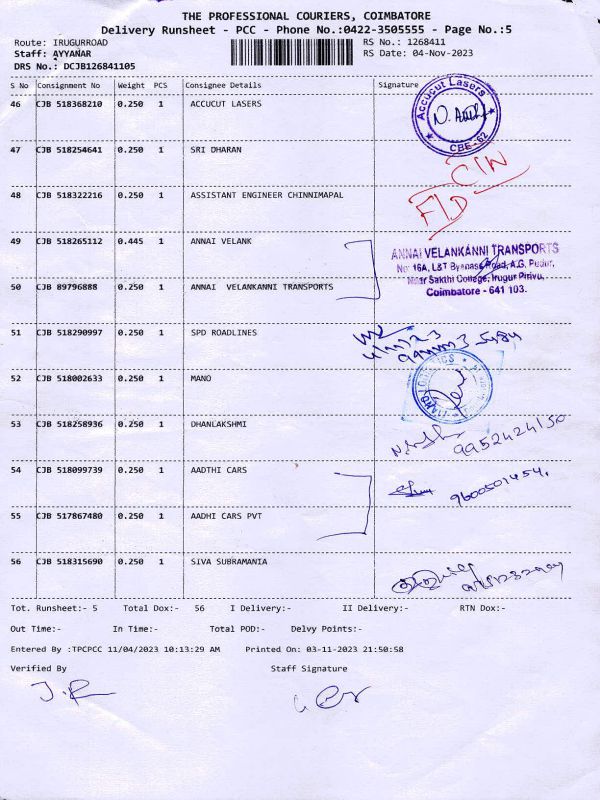 THE PROFESSIONAL COURIERS, COIMBATORE
Delivery Runsheet - PCC - Phone No.:0422-3505555 - Page No.:5
Route: IRUGURROAD
RS No.: 1268411
Staff: AYYANAR
RS Date: 04-Nov-2023
DRS No.: DCJB126841105
S No Consignment No Weight PCS Consignee Details Signature
46 CJB 518368210 0.250 1 ACCUCUT LASERS
Accucut Lasers
CBE-62
47 CJB 518254641 0.250 1 SRI DHARAN
C/N
48 CJB 518322216 0.250 1 ASSISTANT ENGINEER CHINNIMAPAL
F/D
49 CJB 518265112 0.445 1 ANNAI VELANK
ANNAI VELANKANNI TRANSPORTS
No: 16A, L&T Bypass Road, A.G. Pudur,
Near Sakthi College, Irugur Pirivu,
Coimbatore - 641 103.
50 CJB 89796888 0.250 1 ANNAI VELANKANNI TRANSPORTS
51 CJB 518290997 0.250 1 SPD ROADLINES
52 CJB 518002633 0.250 1 MANO
53 CJB 518258936 0.250 1 DHANLAKSHMI
9952424150
54 CJB 518099739 0.250 1 AADTHI CARS
9600501454.
55 CJB 517867480 0.250 1 AADHI CARS PVT
56 CJB 518315690 0.250 1 SIVA SUBRAMANIA
Tot. Runsheet:- 5 Total Dox:- 56 I Delivery:- II Delivery:- RTN Dox:-
Out Time:- In Time:- Total POD:- Delvy Points:-
Entered By :TPCPCC 11/04/2023 10:13:29 AM Printed On: 03-11-2023 21:50:58
Verified By Staff Signature